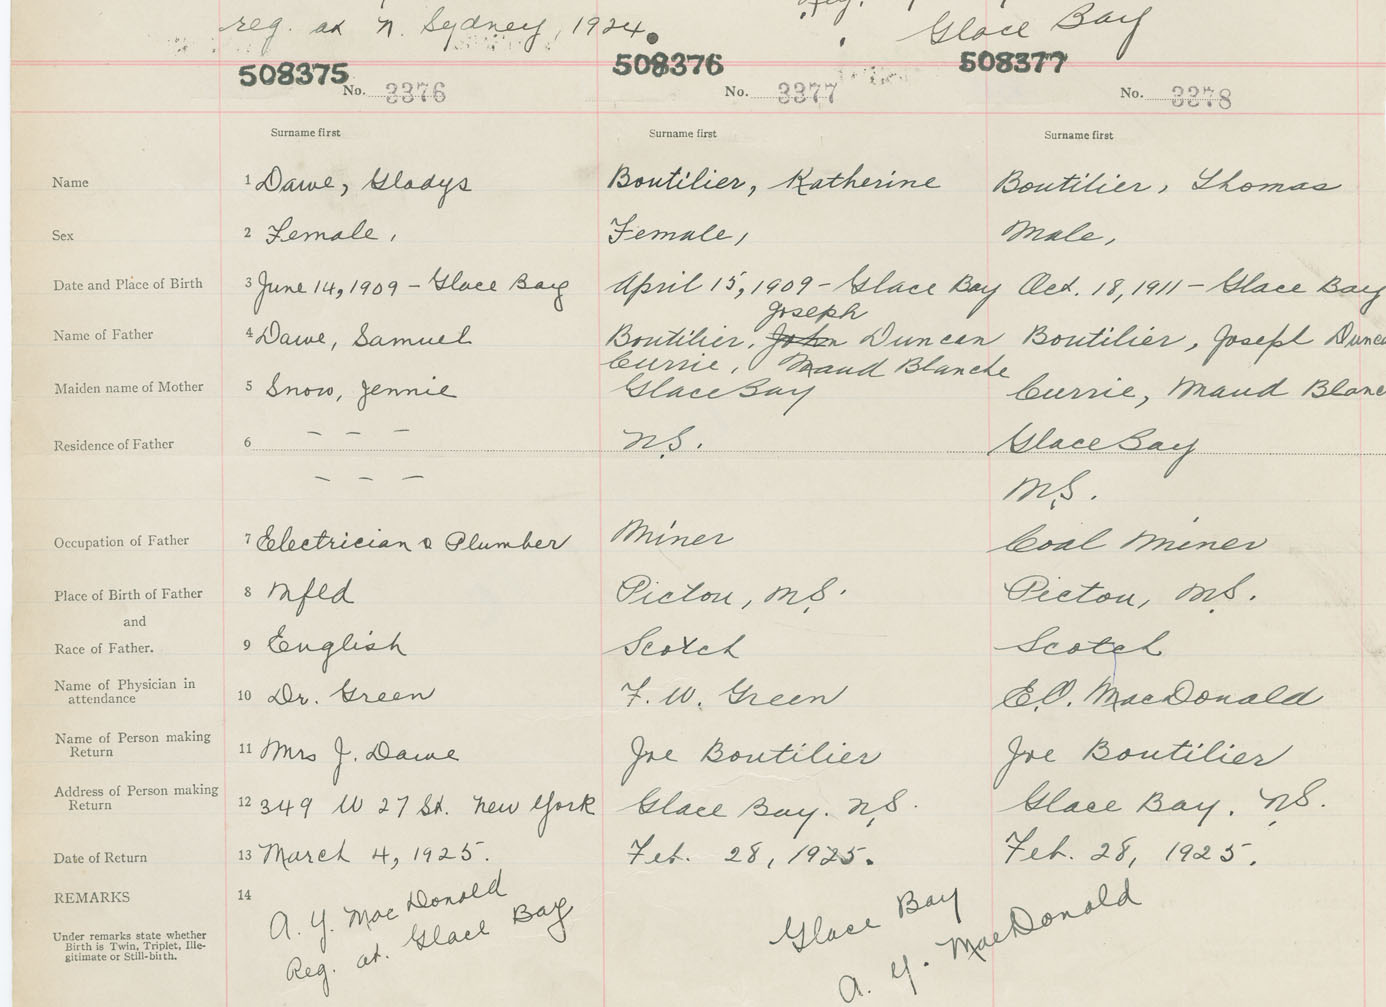 reg. at N. Sydney, 1924.
Reg.
Glace Bay
508375 508376 508377
No. 3376 No. 3377 No. 3378
Surname first Surname first Surname first
Name 1 Dawe, Gladys Boutilier, Katherine Boutilier, Thomas
Sex 2 Female, Female, Male,
Date and Place of Birth 3 June 14, 1909 - Glace Bay April 15, 1909 - Glace Bay Oct. 18, 1911 - Glace Bay
Joseph
Name of Father 4 Dawe, Samuel Boutilier, John Duncan Boutilier, Joseph Dunca
Currie, Maud Blanche
Maiden name of Mother 5 Snow, Jennie Glace Bay Currie, Maud Blanc
Residence of Father 6 - - - N.S. Glace Bay
- - - N.S.
Occupation of Father 7 Electrician & Plumber Miner Coal Miner
Place of Birth of Father 8 Nfld Pictou, N.S. Pictou, N.S.
and
Race of Father. 9 English Scotch Scotch
Name of Physician in
attendance 10 Dr. Green F. W. Green E.O. MacDonald
Name of Person making
Return 11 Mrs J. Dawe Joe Boutilier Joe Boutilier
Address of Person making
Return 12 349 W 27 St. New York Glace Bay. N.S. Glace Bay. N.S.
Date of Return 13 March 4, 1925. Feb. 28, 1925. Feb. 28, 1925.
REMARKS 14
Under remarks state whether
Birth is Twin, Triplet, Ille-
gitimate or Still-birth.
A. Y. MacDonald
Reg. at. Glace Bay
Glace Bay
A. Y. MacDonald